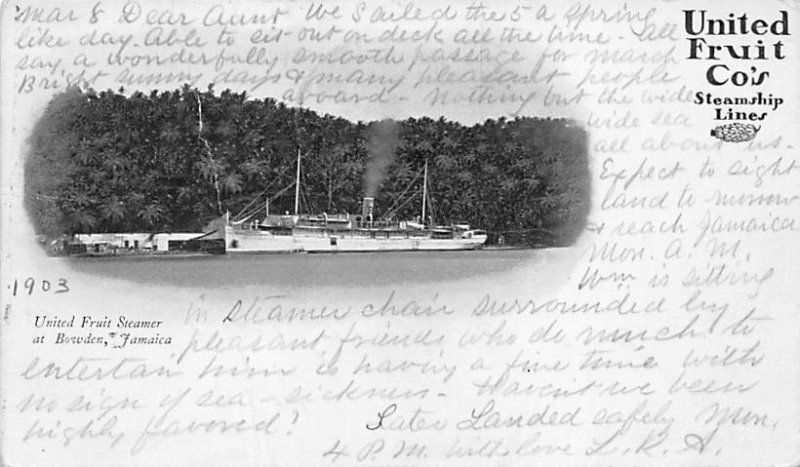 Mar 8 Dear Aunt We Sailed the 5 a Spring
like day. Able to sit out on deck all the time - All
say a wonderfully smooth passage for March
Bright sunny days & many pleasant people
aboard - Nothing but the wide
wide sea
all about us -
Expect to sight
land to morrow
& reach Jamaica
Mon. A. M.
Wm is sitting
in Steamer chair surrounded by
pleasant friends who do much to
entertain him is having a fine time with
no sign of sea-sickness - Haven't we been
highly favored!
Later Landed safely Mon.
4 P.M. With love L. K. A.
United
Fruit
Co's
Steamship
Lines
1903
United Fruit Steamer
at Bowden, Jamaica